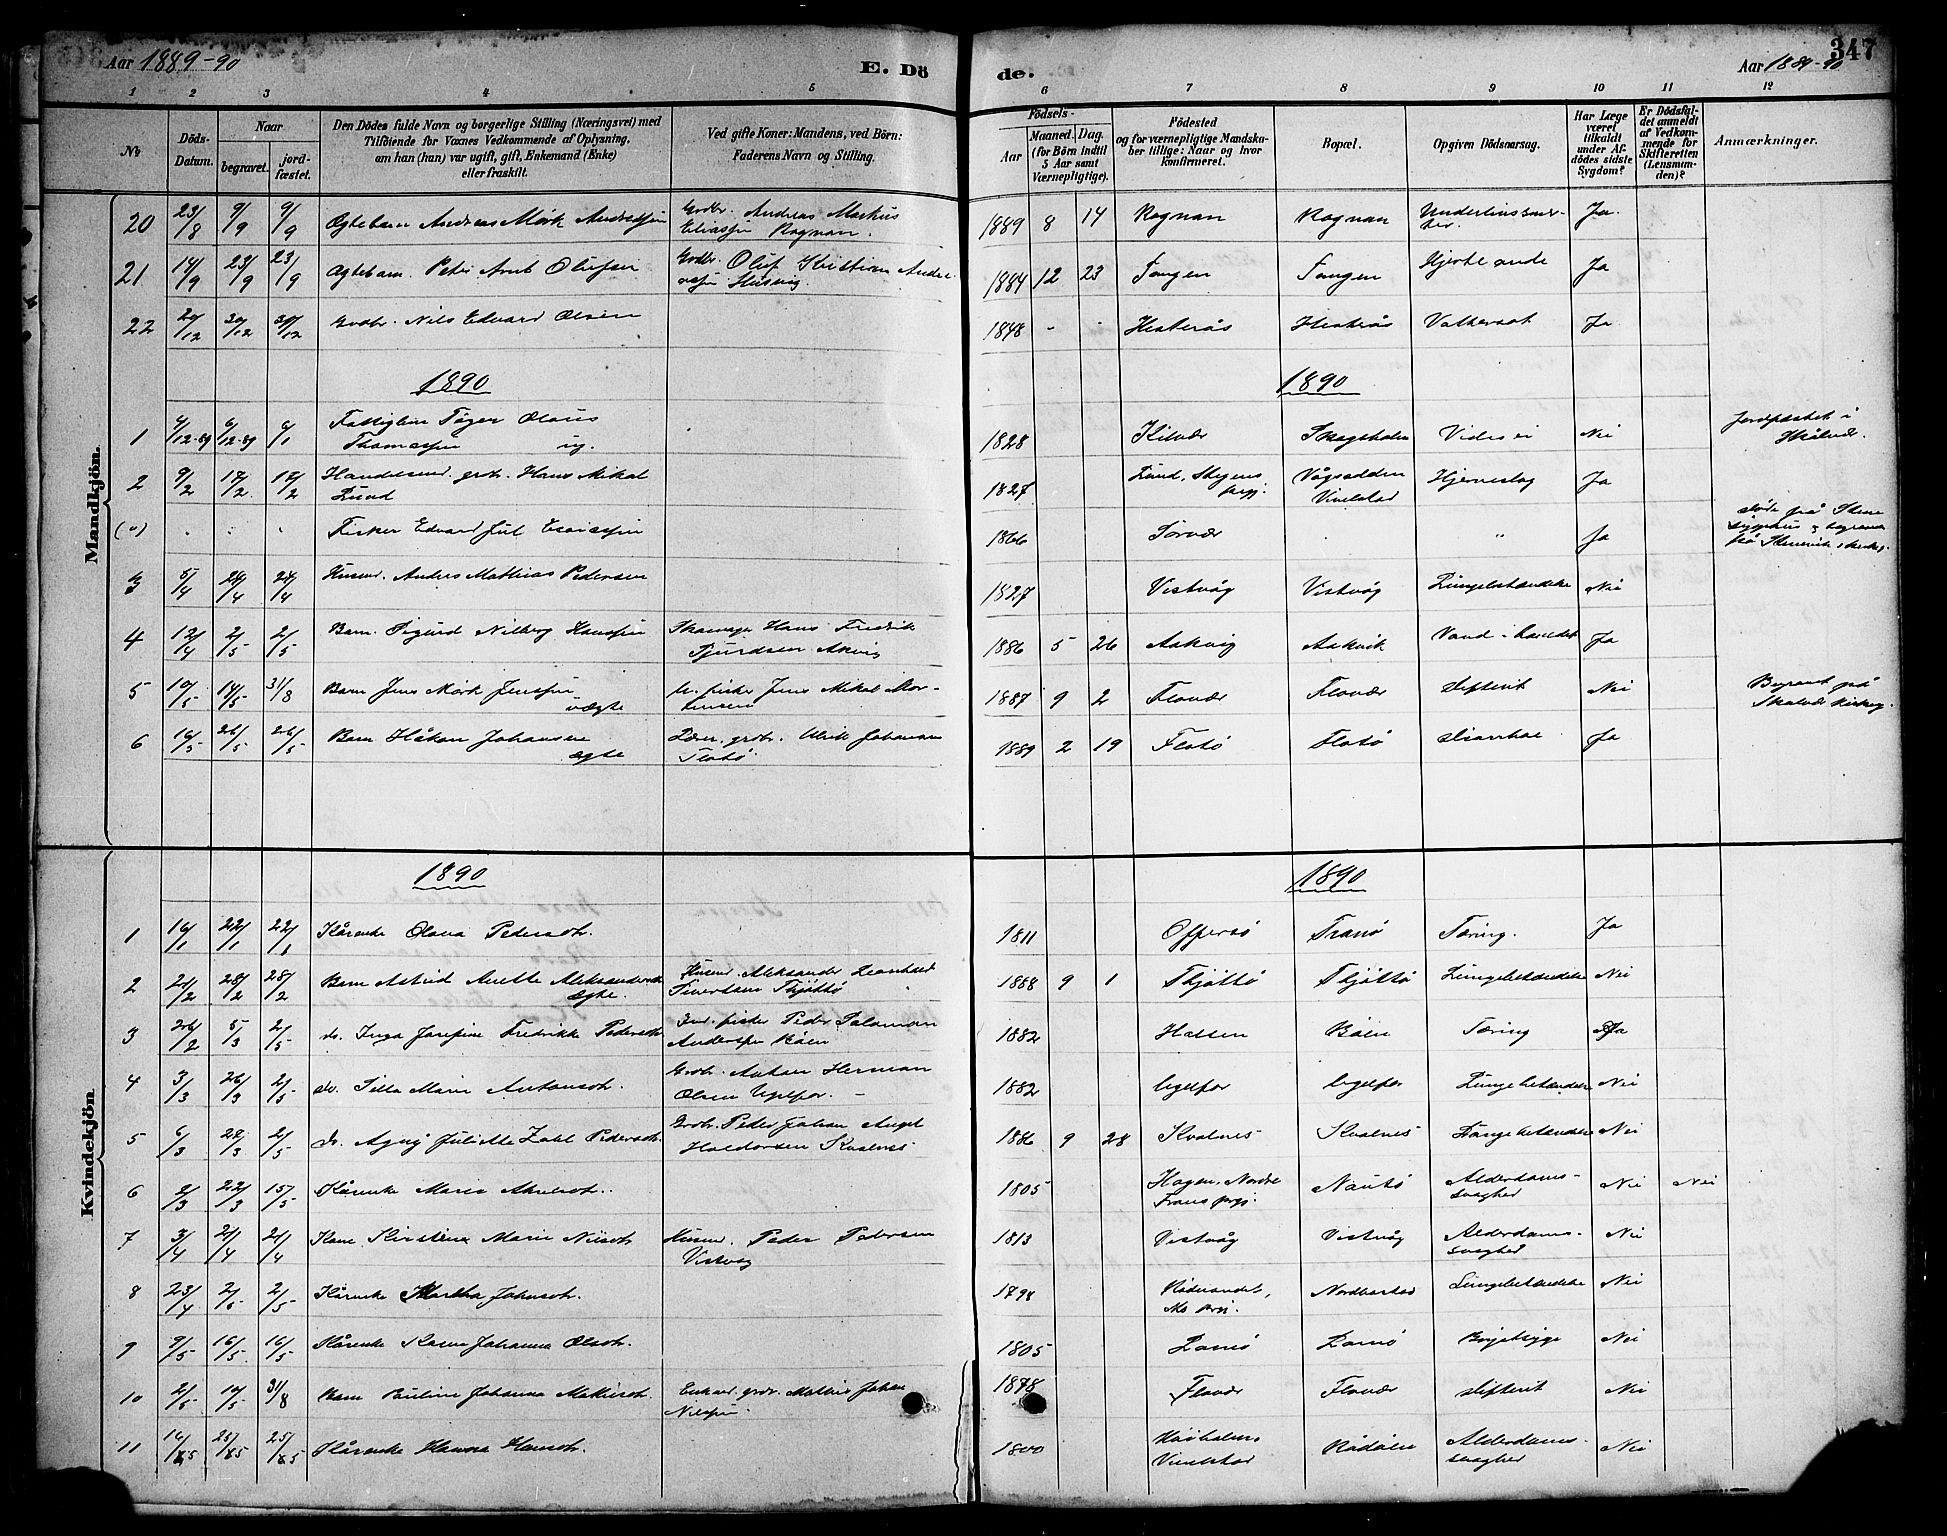 Aar 1889-90
E. Dö
de.
Aar 1889-90
347
1 2 3 4 5 6 7 8 9 10 11 12
№
Döds-Datum.
Naar
begravet.
jord-fæstet.
Den Dödes fulde Navn og borgerlige Stilling (Næringsvei) med
Tilföiende for Voxnes Vedkommende af Oplysning,
om han (hun) var ugift, gift, Enkemand (Enke)
eller fraskilt.
Ved gifte Koner: Mandens, ved Börn:
Faderens Navn og Stilling.
Födsels-
Aar
Maaned. Dag.
(for Börn indtil
5 Aar samt
Værnepligtige).
Födested
og for værnepligtige Mandska-
ber tillige: Naar og hvor
konfirmeret.
Bopæl.
Opgiven Dödsaarsag.
Har Læge
været
tilkaldt
under Af-
dödes sidste
Sygdom?
Er Dödsfal-
det anmeldt
af Vedkom-
mende for
Skifteretten
(Lensman-
den)?
Anmærkninger.
Mandkjön.
20 23/8 9/9 9/9 Ægtebarn Andreas Mørk Andreassen Grdbr. Andreas Markus Eliassen Rognan. 1889 8 14 Rognan Rognan Ja.
21 14/9 23/9 23/9 Ægtebarn Peter Arnt Olufsen Grdbr. Oluf Kristian Andreassen Husvig 1884 12 23 Tangen Tangen Hjerteonde Ja
22 20/12 30/12 30/12 Grdbr. Nils Edvard Olsen 1848 - - Hesterås Hesterås Vattersot Ja
1890
1890
1 4/12-89 6/12-89 6/1 Fattiglem Tøger Olaus Thomassen ug. 1828 Kilvær Skogsholm Vides ei Nei Jordfæstet i Skålvær.
2 9/2 17/2 17/2 Handelsmd. grbr. Hans Mikal Lund 1827 Lund, Stegens prgj. Vågsodden Vivelstad Hjerneslag Ja
(") . : " Fisker Edvard Jul Esaiassen 1866 Sørvær " Ja døde på sygehus & begraven på
3 5/4 24/4 24/4 Husmd. Anders Mathias Pedersen 1827 Vistvåg Vistvåg Lungebetændelse Nei
4 12/4 2/5 2/5 Barn Sigurd Nilberg Hanssen Skomager Hans Fredrik Sjurdsen Akvig 1886 5 26 Aakvig Aakvik Vand i hovedet Ja
5 10/5 14/5 31/8 Barn Jens Mørk Jenssen uægte u. fisker Jens Mikal Mortensen 1887 9 2 Flovær Flovær difterit Nei Begravet på Skålvær kirkeg.
6 16/5 26/5 26/5 Barn Håkon Johansen ægte Lær. grbr. Ulrik Johansen Flatø 1889 2 19 Flatø Flatø diarrhoe Ja
Kvindekjön
1890
1890
1 16/1 22/1 22/1 Kårenke Olava Pedersdtr. 1811 Offersø Tranø Tæring. Ja
2 20/2 28/2 28/2 Barn Astrid Anette Aleksandersdtr. ægte. Husmd. Aleksander Leonhard Sivertsen Thjøttø 1888 9 1 Thjøttø Thjøttø Lungebetændelse Nei
3 26/2 5/3 2/5 do. Inga Josefine Fredrikke Pedersdtr. Ind. fisker Peder Salamon Anderssen Båen 1882 Halsen Båen Tæring Ja
4 3/3 26/3 2/5 do. Milla Marie Antonsdtr. Grdbr. Anton Herman Olsen Ugelfor. 1882 Ugelfor Ugelfor Lungebetændelse Nei
5 6/3 22/3 2/5 do. Agny Juliette Zahl Pedersdtr. Grdbr. Peder Johan Angel Haldorsen Kvalnes 1886 9 28 Kvalnes Kvalnes Lungebetændelse Nei
6 2/3 22/3 15/5 Kårenke Maren 1805 Hagen, Nordre Prgj. Nautø Alderdomssvaghed Nei Nei
7 3/4 20/4 20/4 Kone Kirstina Marie Nilsdtr. Husmd. Peder Pedersen Vistvåg 1813 Vistvåg Vistvåg Alderdomssvaghed Nei
8 23/4 2/5 2/5 Kårenke Martha Johnsdtr. 1798 Mo prgj. Lungebetændelse Nei
9 9/5 16/5 16/5 Kårenke Karen Johanna Olsdtr. 1805 Brystsyge Nei
10 2/5 10/5 31/8 Barn Pauline Johanna Mathisdtr. Enkemd. grdbr. Mathis Johan Nilssen 1878 Flovær Flovær difterit Nei
11 16/5 25/5 25/5 Kårenke Hanna Hansdtr. 1800 Høiholmen Vivelstad Rødøen Alderdomssvaghed Nei